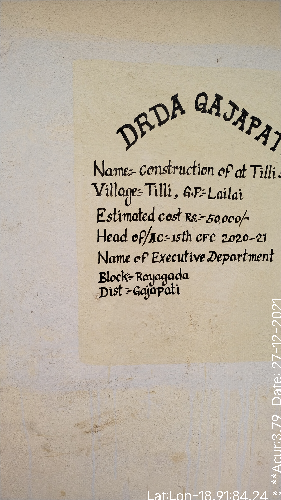 DRDA GAJAPAT
Name:- construction of at Tilli
Village:- Tilli, G.P:- Lailai
Estimated cost Rs:- 50,000/-
Head of/AC:- 15th CFC 2020-21
Name of Executive Department
Block:- Rayagada
Dist :- Gajapati
**Acur:3.79 Date: 27-12-2021
Lat:Lon-18.91:84.24